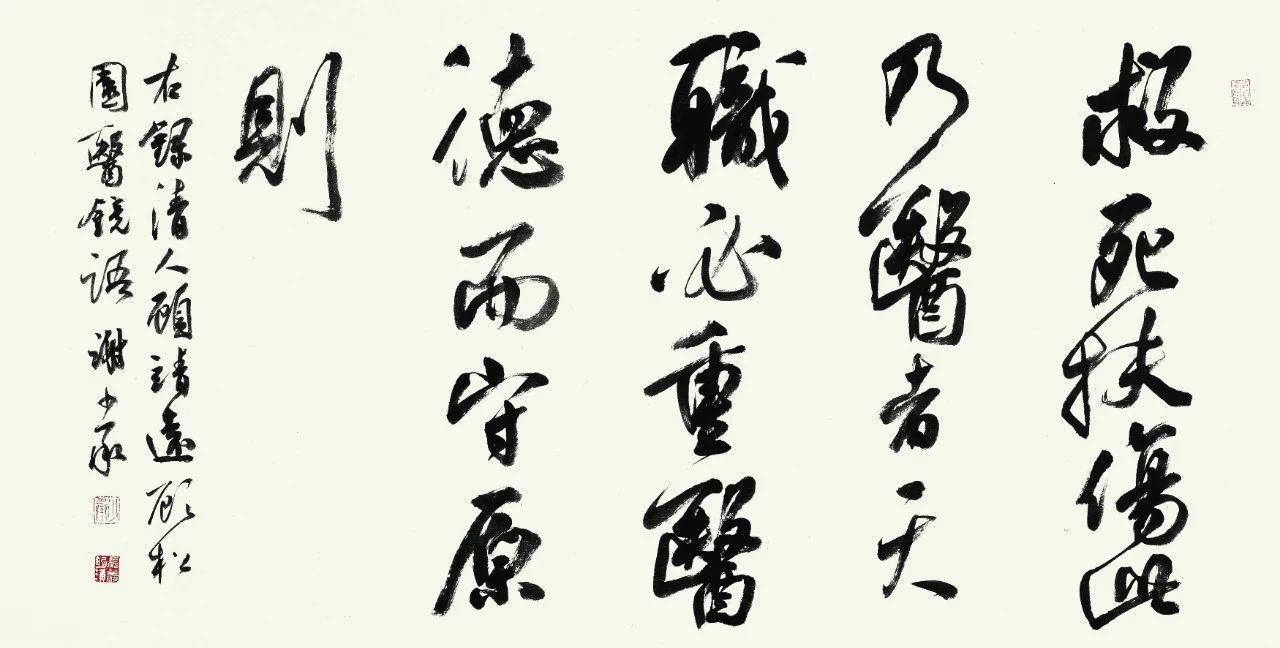 救死扶傷此
乃醫者天
職必重醫
德而守原
則
右錄清人顧靖遠顧松
園醫鏡語 謝少承